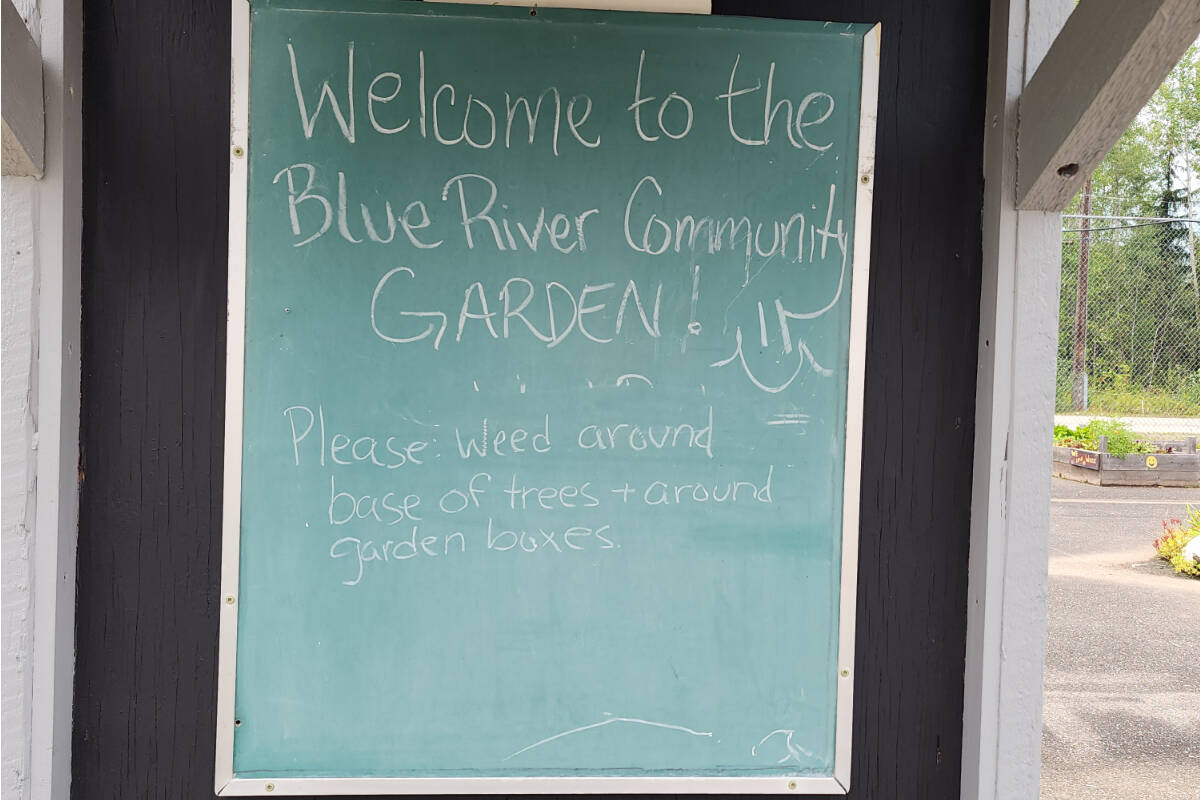 Welcome to the
Blue River Community
GARDEN!
Please: Weed around
base of trees + around
garden boxes.